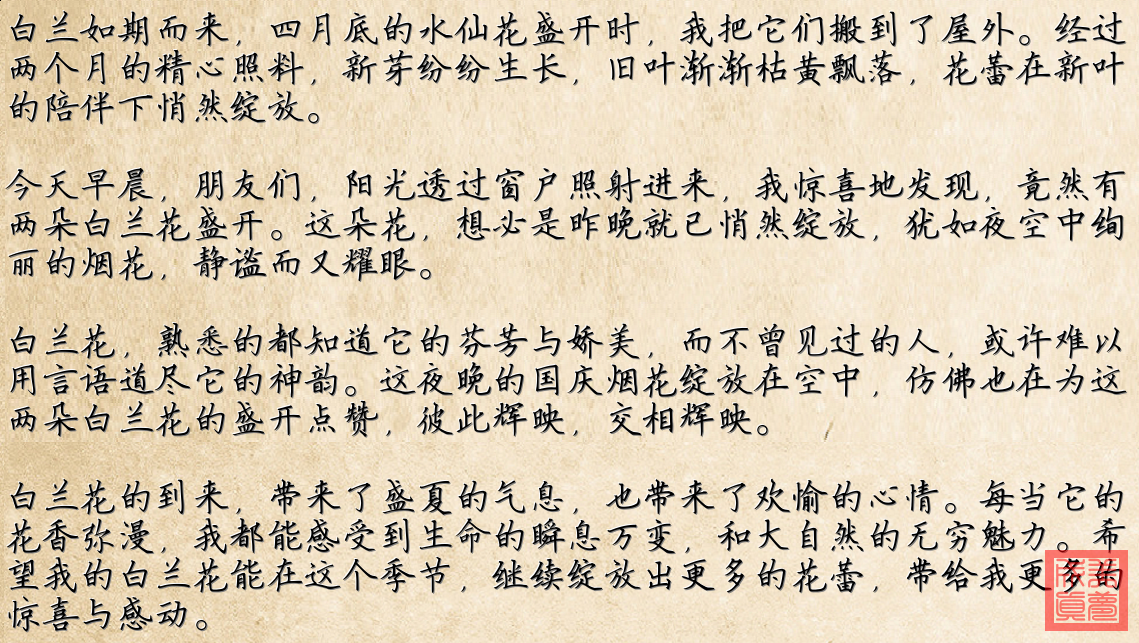 白兰如期而来，四月底的水仙花盛开时，我把它们搬到了屋外。经过
两个月的精心照料，新芽纷纷生长，旧叶渐渐枯黄飘落，花蕾在新叶
的陪伴下悄然绽放。
今天早晨，朋友们，阳光透过窗户照射进来，我惊喜地发现，竟然有
两朵白兰花盛开。这朵花，想必是昨晚就已悄然绽放，犹如夜空中绚
丽的烟花，静谧而又耀眼。
白兰花，熟悉的都知道它的芬芳与娇美，而不曾见过的人，或许难以
用言语道尽它的神韵。这夜晚的国庆烟花绽放在空中，仿佛也在为这
两朵白兰花的盛开点赞，彼此辉映，交相辉映。
白兰花的到来，带来了盛夏的气息，也带来了欢愉的心情。每当它的
花香弥漫，我都能感受到生命的瞬息万变，和大自然的无穷魅力。希
望我的白兰花能在这个季节，继续绽放出更多的花蕾，带给我更多的
惊喜与感动。